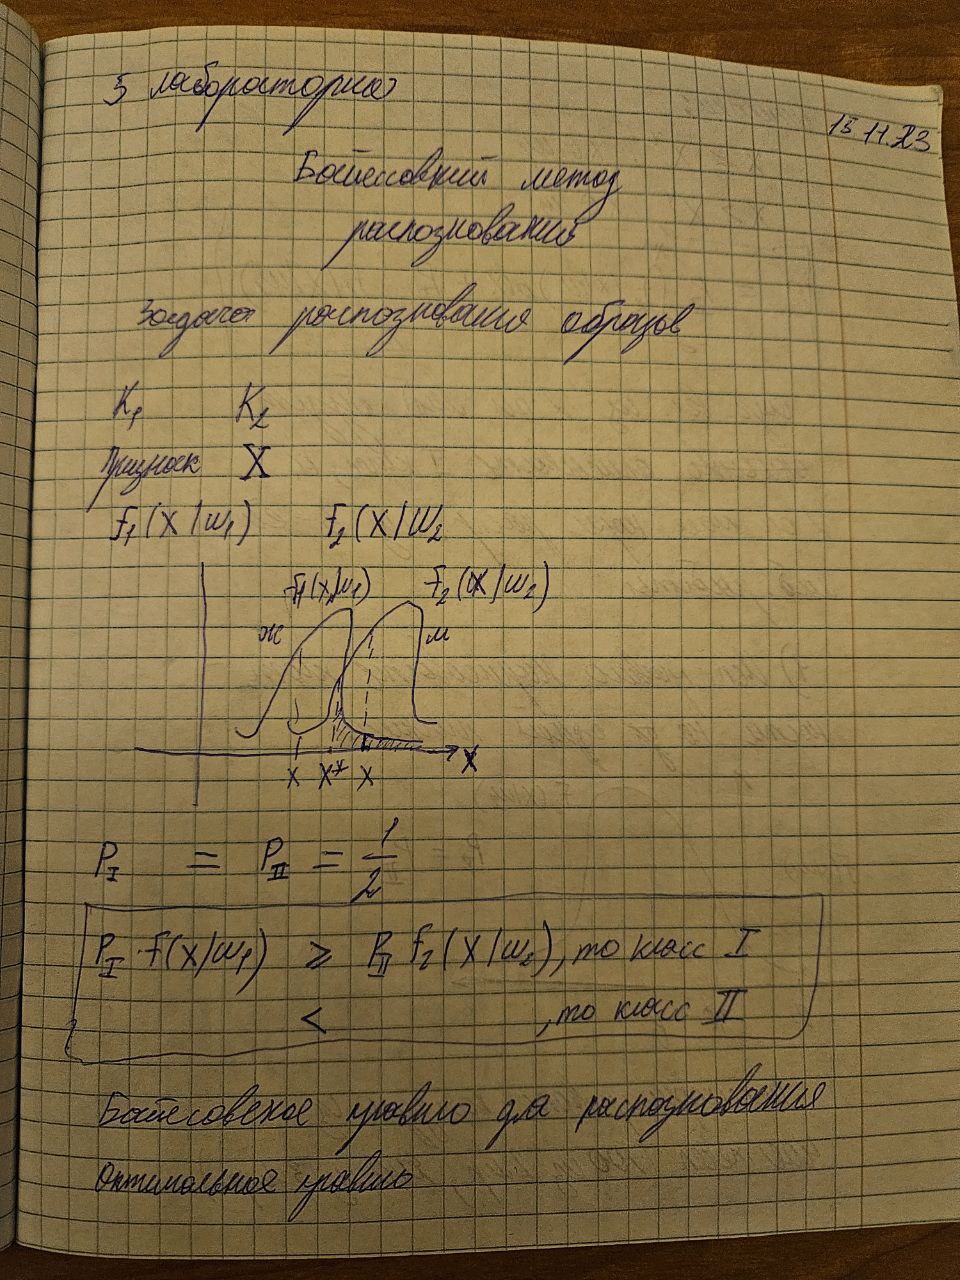 3 лабораторная
15.11.23
Байесовский метод
распознования
Задача распознования образов
K₁ K₂
Признак X
f₁(X|w₁) f₂(X|w₂
f₁(X|w₁) f₂(X|w₂)
ж м
X X* X X
P_I = P_II = 1/2
P_I · f(X|w₁) ⩾ P_II f₂(X|w₂), то класс I
< , то класс II
Байесовское правило для распознования
Оптимальное правило